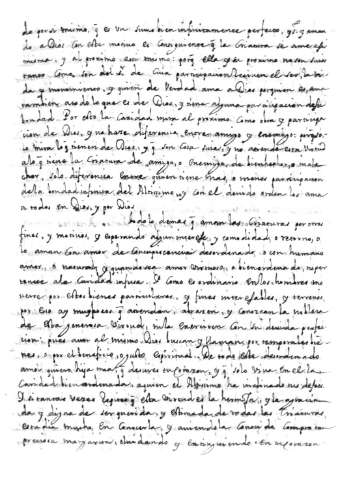 do por si mismo, q̃ es un sumo bien infinitamente perfecto, y si aman
do a Dios con este motivo es consiguiente q̃ la criatura se ame a si
misma, y al proximo como mismo: porq̃ ella y su proximo no son suios
tanto como son del Sr. de cuia participacion reciuen el ser, la vi
da y movimiento, y quien de verdad ama a Dios por quien es, ama
tambien todo lo que es de Dios, y tiene alguna participacion de su
bondad. Por esto la Caridad mira al proximo como obra y participa
cion de Dios, y no haze diferencia entre amigo y enemigo: porq̃ so
lo mira lo q̃ tienen de Dios, y q̃ son cosa suia, y no atiende esta virtud
a lo q̃ tiene la criatura de amigo, o enemigo, de bienhechor, o male
chor, solo diferencia entre quien tiene mas, o menos participacion
de la bondad infinita del Altissimo, y con el devido orden los ama
a todos en Dios, y por Dios
Todo lo demas q̃ aman las criaturas por otros
fines, y motiuos, y esperando algun interese, y comodidad, o retorno, o
lo aman con amor de concupiscencia desordenada, o con humano
amor, o natural, y quando sea amor virtuoso, o bien ordenado, no per
tenece a la Caridad infusa. I como es ordinario en los hombres mo
verse por estos bienes particulares, y fines interesables, y terrenos,
por eso ay muy pocos q̃ atiendan, abrazen, y conozcan la nobleza
de esta generosa virtud, ni la exerciten con su devida perfec
cion, pues aun al mismo Dios buscan y llaman por temporales bie
nes, o por el beneficio, o gusto espiritual. De todo este desordenado
amor quiero hija mia, q̃ desvies tu corazon, y q̃ solo viva en el la
Caridad bien ordenada, a quien el Altissimo ha inclinado tus deseos.
Si tantas vezes repites q̃ esta virtud es la hermosa, y la agracia
da y digna de ser querida, y estimada de todas las criaturas,
estudia mucho en conocerla, y auiendola conocido compra tan
preciosa margarita, olvidando y extinguiendo en tu corazon